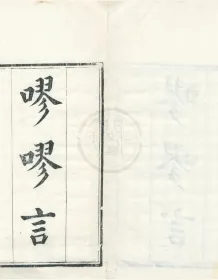 嘐嘐言